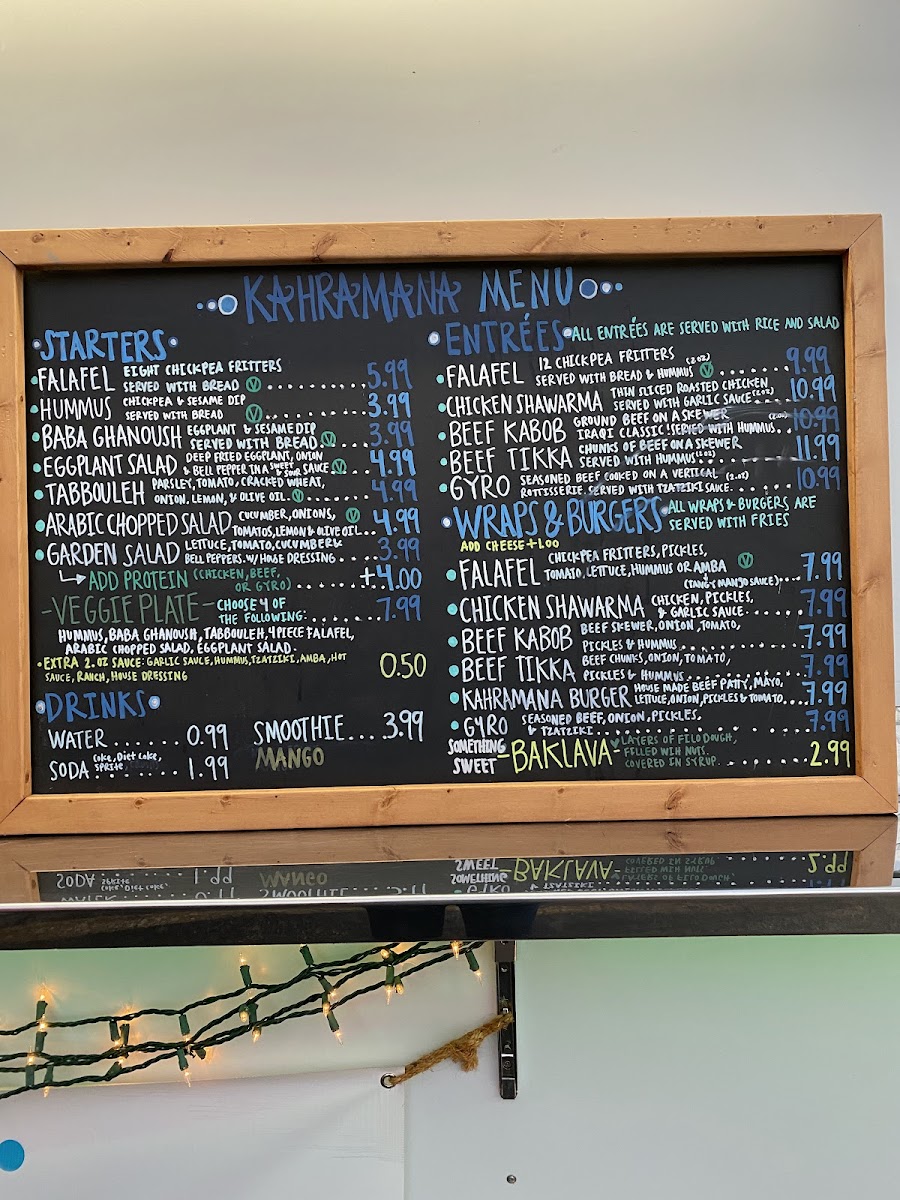 KAHRAMANA MENU
STARTERS
FALAFEL EIGHT CHICKPEA FRITTERS
SERVED WITH BREAD Ⓥ 5.99
HUMMUS CHICKPEA & SESAME DIP
SERVED WITH BREAD Ⓥ 3.99
BABA GHANOUSH EGGPLANT & SESAME DIP
SERVED WITH BREAD. Ⓥ 3.99
EGGPLANT SALAD DEEP FRIED EGGPLANT, ONION
& BELL PEPPER IN A SWEET & SOUR SAUCE Ⓥ 4.99
TABBOULEH PARSLEY, TOMATO, CRACKED WHEAT,
ONION, LEMON, & OLIVE OIL. Ⓥ 4.99
ARABIC CHOPPED SALAD CUCUMBER, ONIONS, Ⓥ
TOMATOS, LEMON & OLIVE OIL... 4.99
GARDEN SALAD LETTUCE, TOMATO, CUCUMBER &
BELL PEPPERS. W/ HOUSE DRESSING 3.99
ADD PROTEIN (CHICKEN, BEEF,
OR GYRO) +4.00
-VEGGIE PLATE- CHOOSE 4 OF
THE FOLLOWING: 7.99
HUMMUS, BABA GHANOUSH, TABBOULEH, 4 PIECE FALAFEL,
ARABIC CHOPPED SALAD, EGGPLANT SALAD.
EXTRA 2.OZ SAUCE: GARLIC SAUCE, HUMMUS, TZATZIKI, AMBA, HOT
SAUCE, RANCH, HOUSE DRESSING 0.50
DRINKS
WATER 0.99
SODA Coke, Diet Coke,
Sprite 1.99
SMOOTHIE... 3.99
MANGO
ENTRÉES ALL ENTRÉES ARE SERVED WITH RICE AND SALAD
FALAFEL 12 CHICKPEA FRITTERS
SERVED WITH BREAD & HUMMUS (2oz) Ⓥ 9.99
CHICKEN SHAWARMA THIN SLICED ROASTED CHICKEN
SERVED WITH GARLIC SAUCE (2oz) 10.99
BEEF KABOB GROUND BEEF ON A SKEWER
IRAQI CLASSIC! SERVED WITH HUMMUS (2oz) 10.99
BEEF TIKKA CHUNKS OF BEEF ON A SKEWER
SERVED WITH HUMMUS (2oz) 11.99
GYRO SEASONED BEEF COOKED ON A VERTICAL
ROTISSERIE. SERVED WITH TZATZIKI SAUCE (2oz) 10.99
WRAPS & BURGERS ALL WRAPS & BURGERS ARE
SERVED WITH FRIES
ADD CHEESE +1.00
FALAFEL CHICKPEA FRITTERS, PICKLES,
TOMATO, LETTUCE, HUMMUS OR AMBA Ⓥ
(TANGY MANGO SAUCE) 7.99
CHICKEN SHAWARMA CHICKEN, PICKLES,
& GARLIC SAUCE 7.99
BEEF KABOB BEEF SKEWER, ONION, TOMATO,
PICKLES & HUMMUS 7.99
BEEF TIKKA BEEF CHUNKS, ONION, TOMATO,
PICKLES & HUMMUS 7.99
KAHRAMANA BURGER HOUSE MADE BEEF PATTY, MAYO,
LETTUCE, ONION, PICKLES & TOMATO 7.99
GYRO SEASONED BEEF, ONION, PICKLES,
& TZATZIKI 7.99
SOMETHING
SWEET -BAKLAVA- LAYERS OF FILO DOUGH,
FILLED WIH NUTS.
COVERED IN SYRUP. 2.99